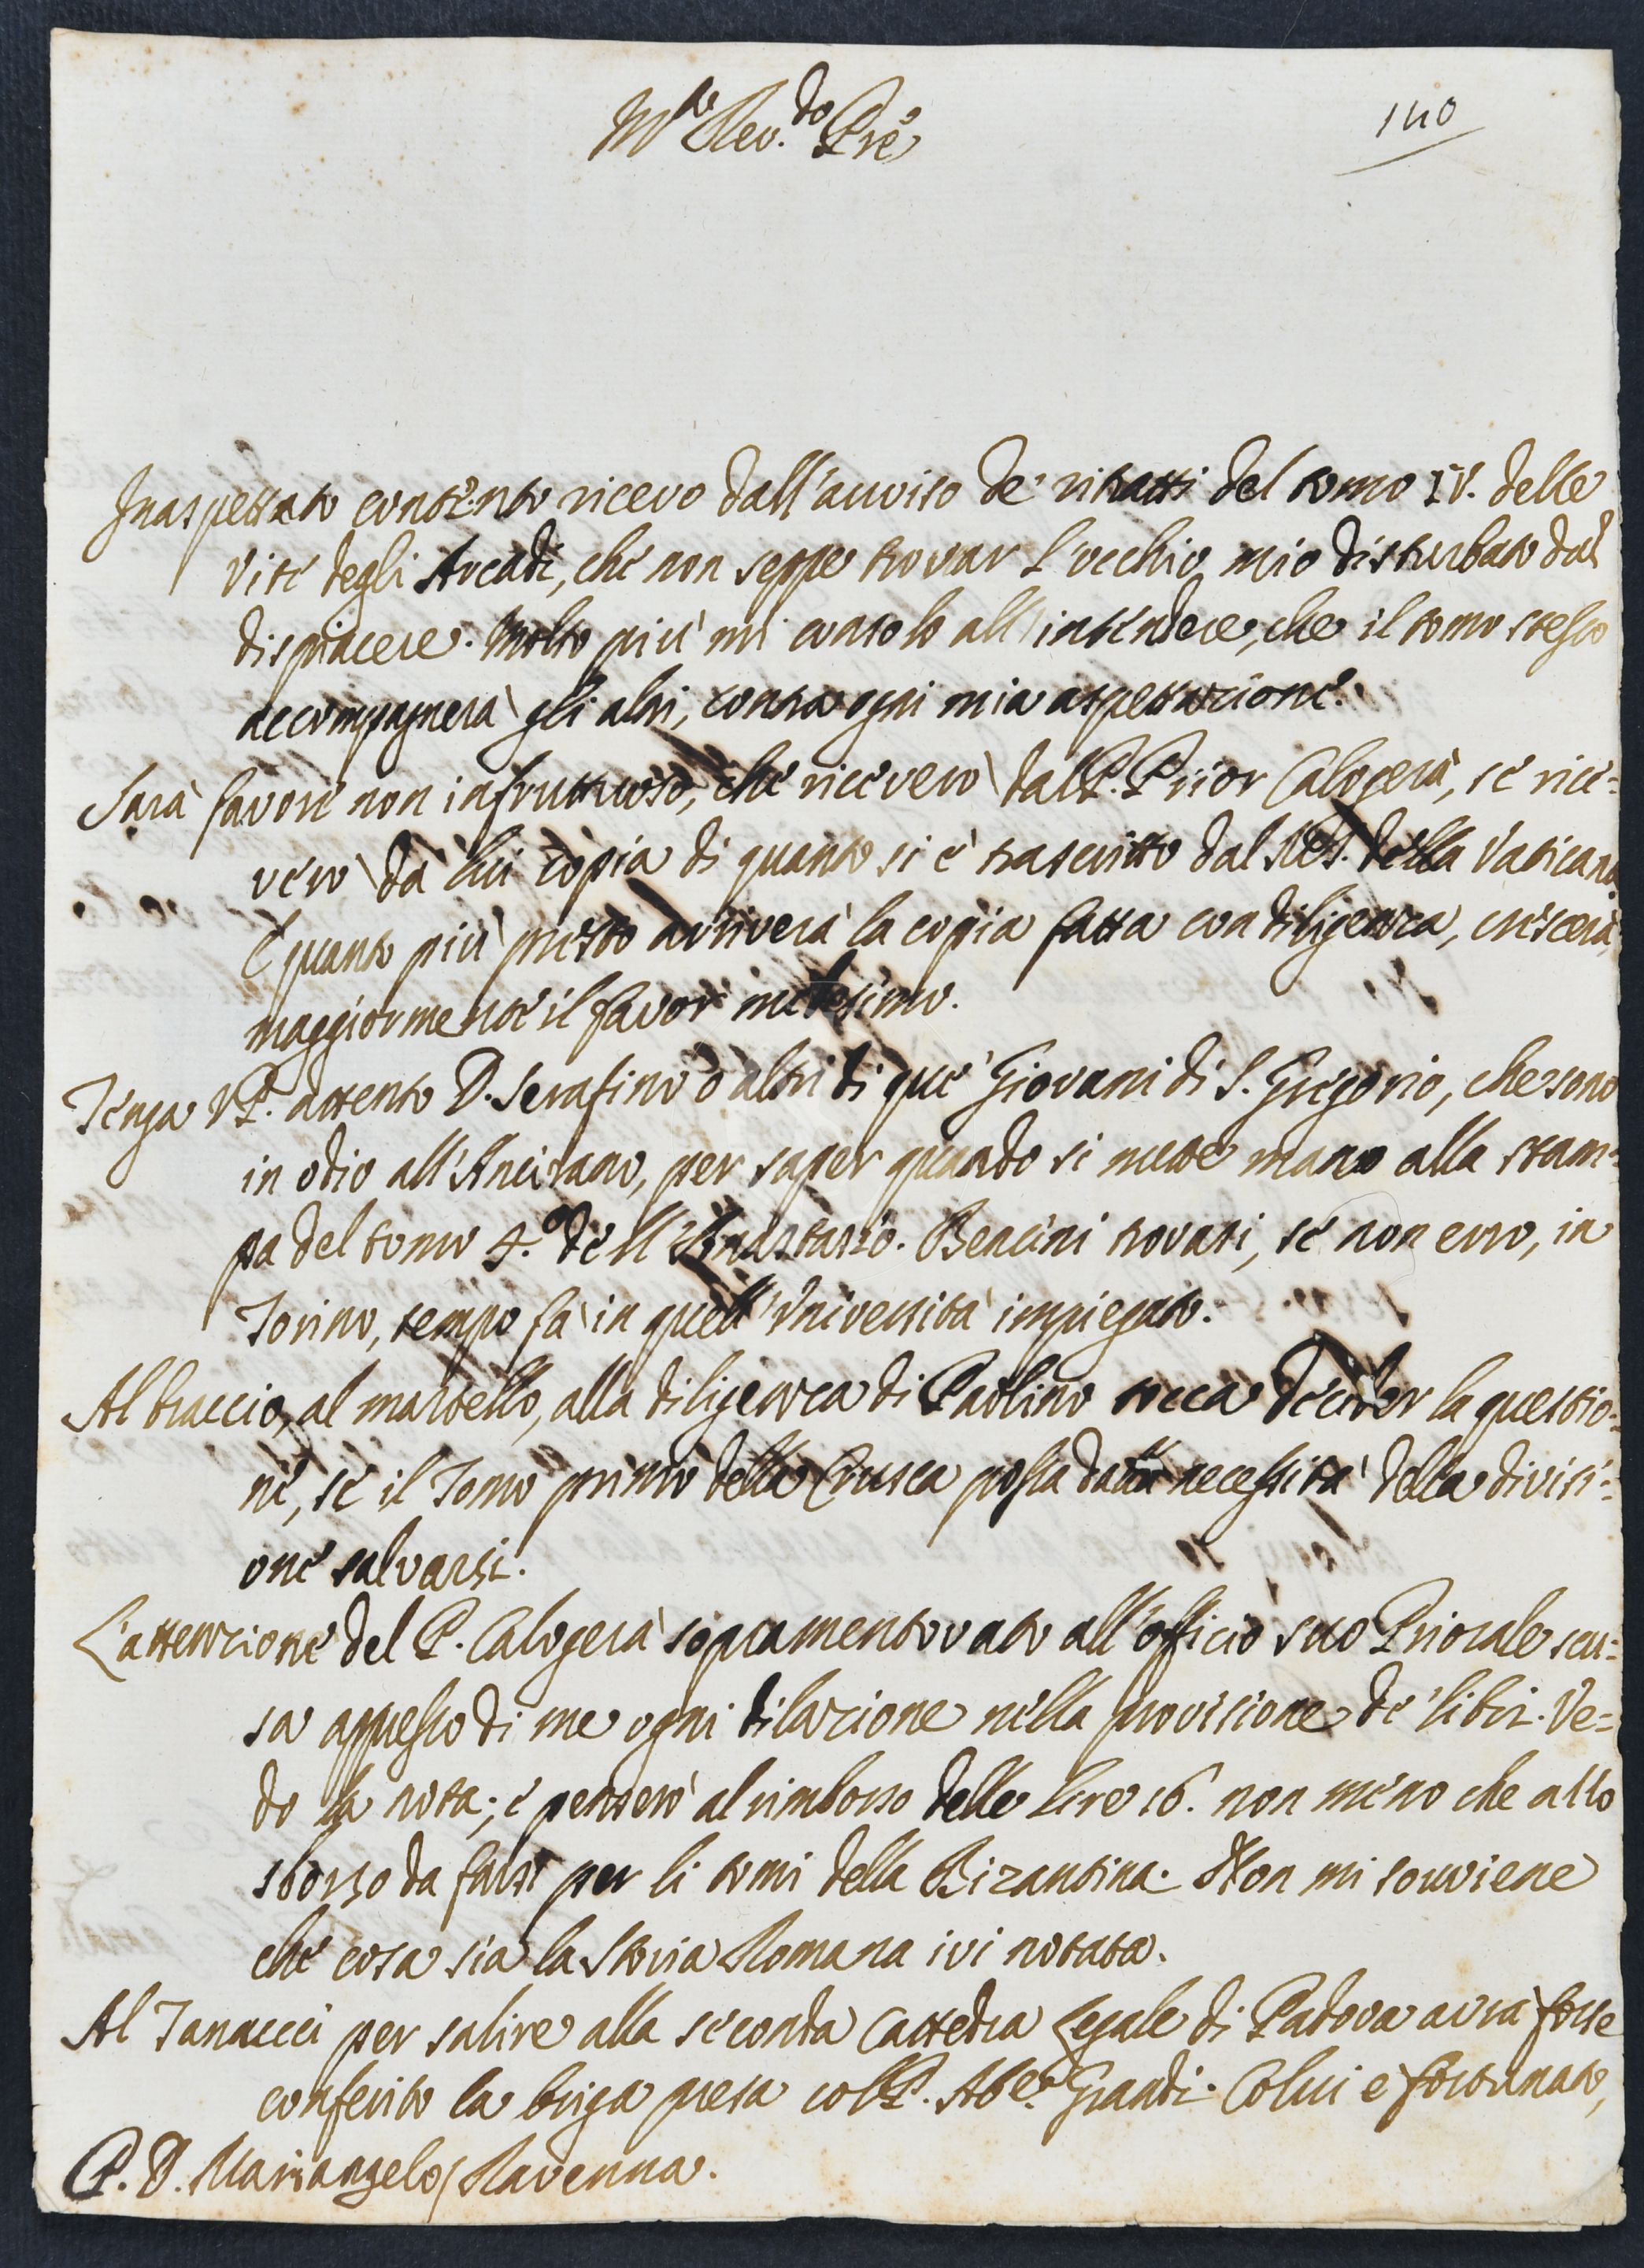 M.to Rev.do Pre
140
Inaspettato contento ricevo dall'avviso de' ritratti del tomo IV. delle
Vite degli Arcadi, che non seppe trovar l'occhio mio disturbato dal
dispiacere. Molto più mi consolo all'intendere, che il tomo stesso
accompagnerà gli altri, contra ogni mia aspettazione.
Sarà favore non infruttuoso, che riceverò dal P. Prior Calogerà, se rice=
verò da lui copia di quanto si è trascritto dal MS. della Vaticana.
E quanto più presto arriverà la copia fatta con diligenza, crescerà
maggiormente il favor medesimo.
Tenga V.P. attento D. Serafino o altri di que' Giovani di S. Gregorio, che sono
in odio all'Ancirano, per saper quando si mette mano alla stam=
pa del tomo 4.o dell'Anastasio. Bencini trovasi, se non erro, in
Torino, tempo fa in quell'Università impiegato.
Al braccio, al martello, alla diligenza di Paolino tocca decider la questio=
ne, se il Tomo primo della Crusca possa dalla necessità della divisi=
one salvarsi.
L'attenzione del P. Calogerà sopramentovato all'officio suo Priorale scu=
sa appresso di me ogni dilazione nella provisione de' libri. Ve=
do la nota; e penserò al rimborso delle Lire 16. non meno che allo
sborso da farsi per li tomi della Bizantina. Non mi souviene
che cosa sia la Storia Romana ivi notata.
Al Tanucci per salire alla seconda Cattedra Legale di Padova avrà forse
conferito la briga presa col P. Ab.e Grandi. Colui è fortunato,
P. D. Mariangelo / Ravenna.